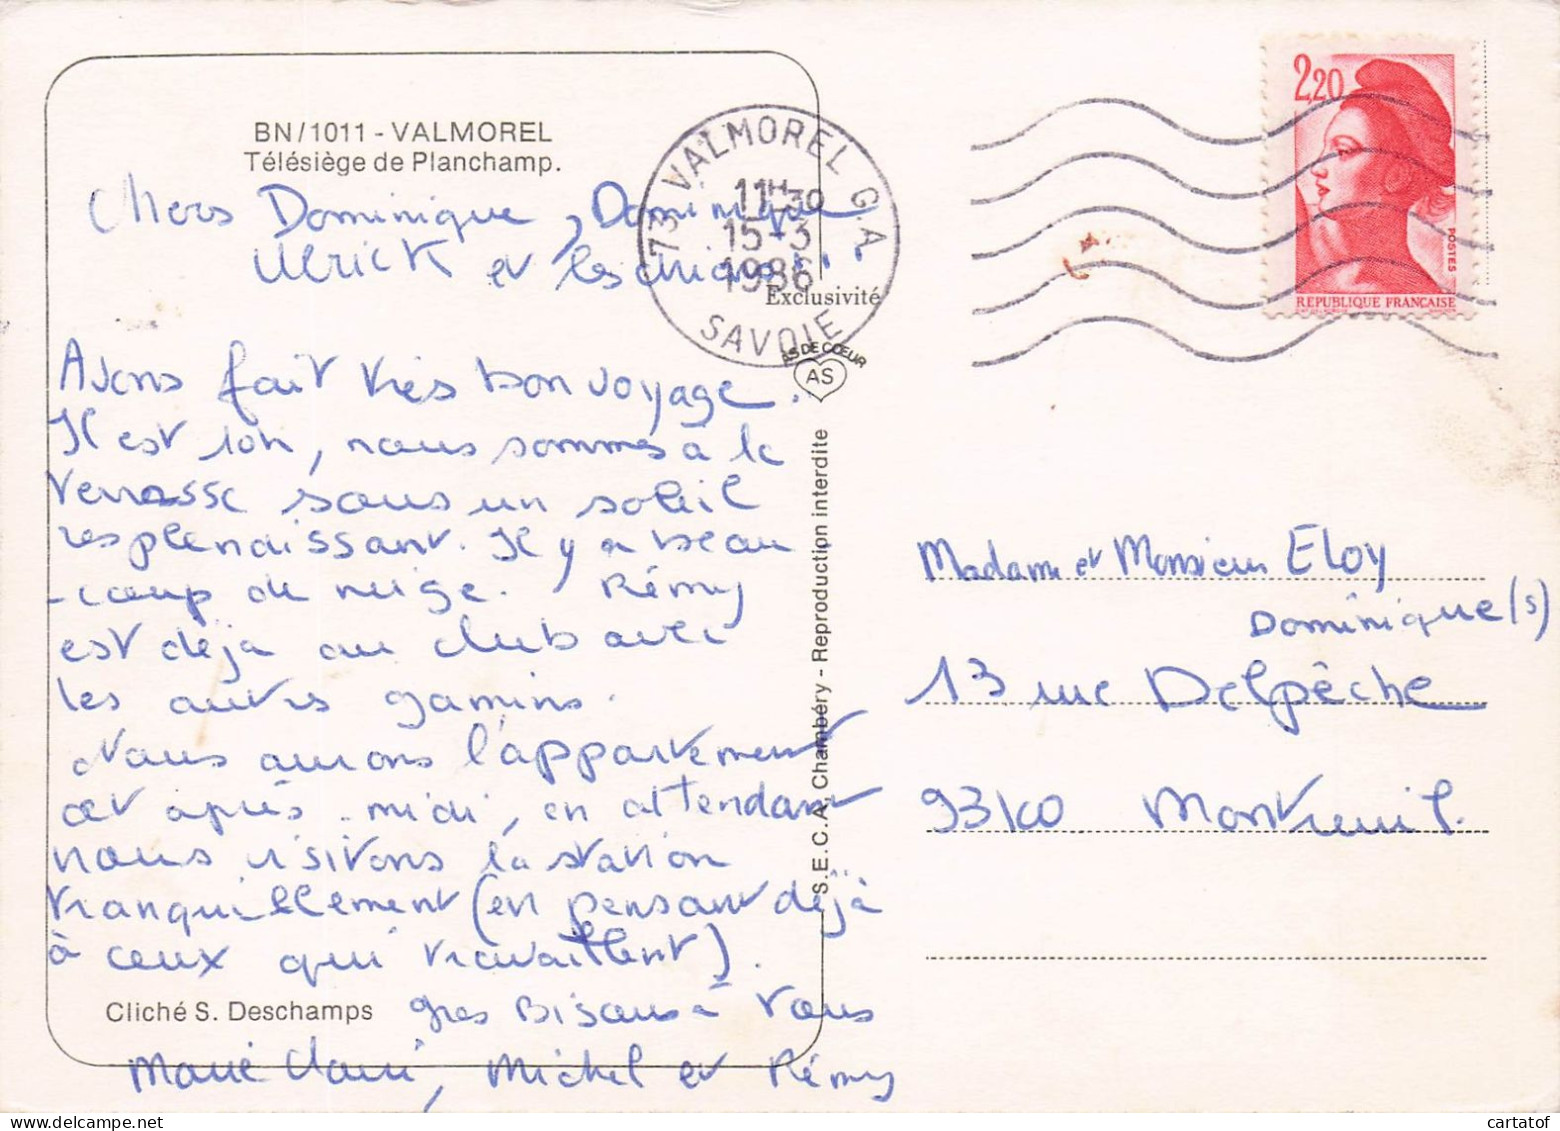 BN/1011 - VALMOREL
Télésiège de Planchamp.
Chers Dominique, Dominique
Ulrick et les chiens...
Avons fait très bon voyage.
Il est 10h, nous sommes à la
terrasse sous un soleil
resplendissant. Il y a beau
-coup de neige. Rémy
est déjà au club avec
les autres gamins.
Nous aurons l'appartement
cet après-midi, en attendant
nous visitons la station
tranquillement (en pensant déjà
à ceux qui travaillent).
Gros Bisous à vous
Marie Claire, Michel et Rémy
Cliché S. Deschamps
73 VALMOREL G.A.
11H30
15-3
1986
SAVOIE
Exclusivité
AS DE CŒUR
AS
S.E.C.A, Chambéry - Reproduction interdite
2,20
POSTES
REPUBLIQUE FRANÇAISE
Madame et Monsieur Eloy
Dominique(s)
13 rue Delpêche
93100 Montreuil.
cartatof